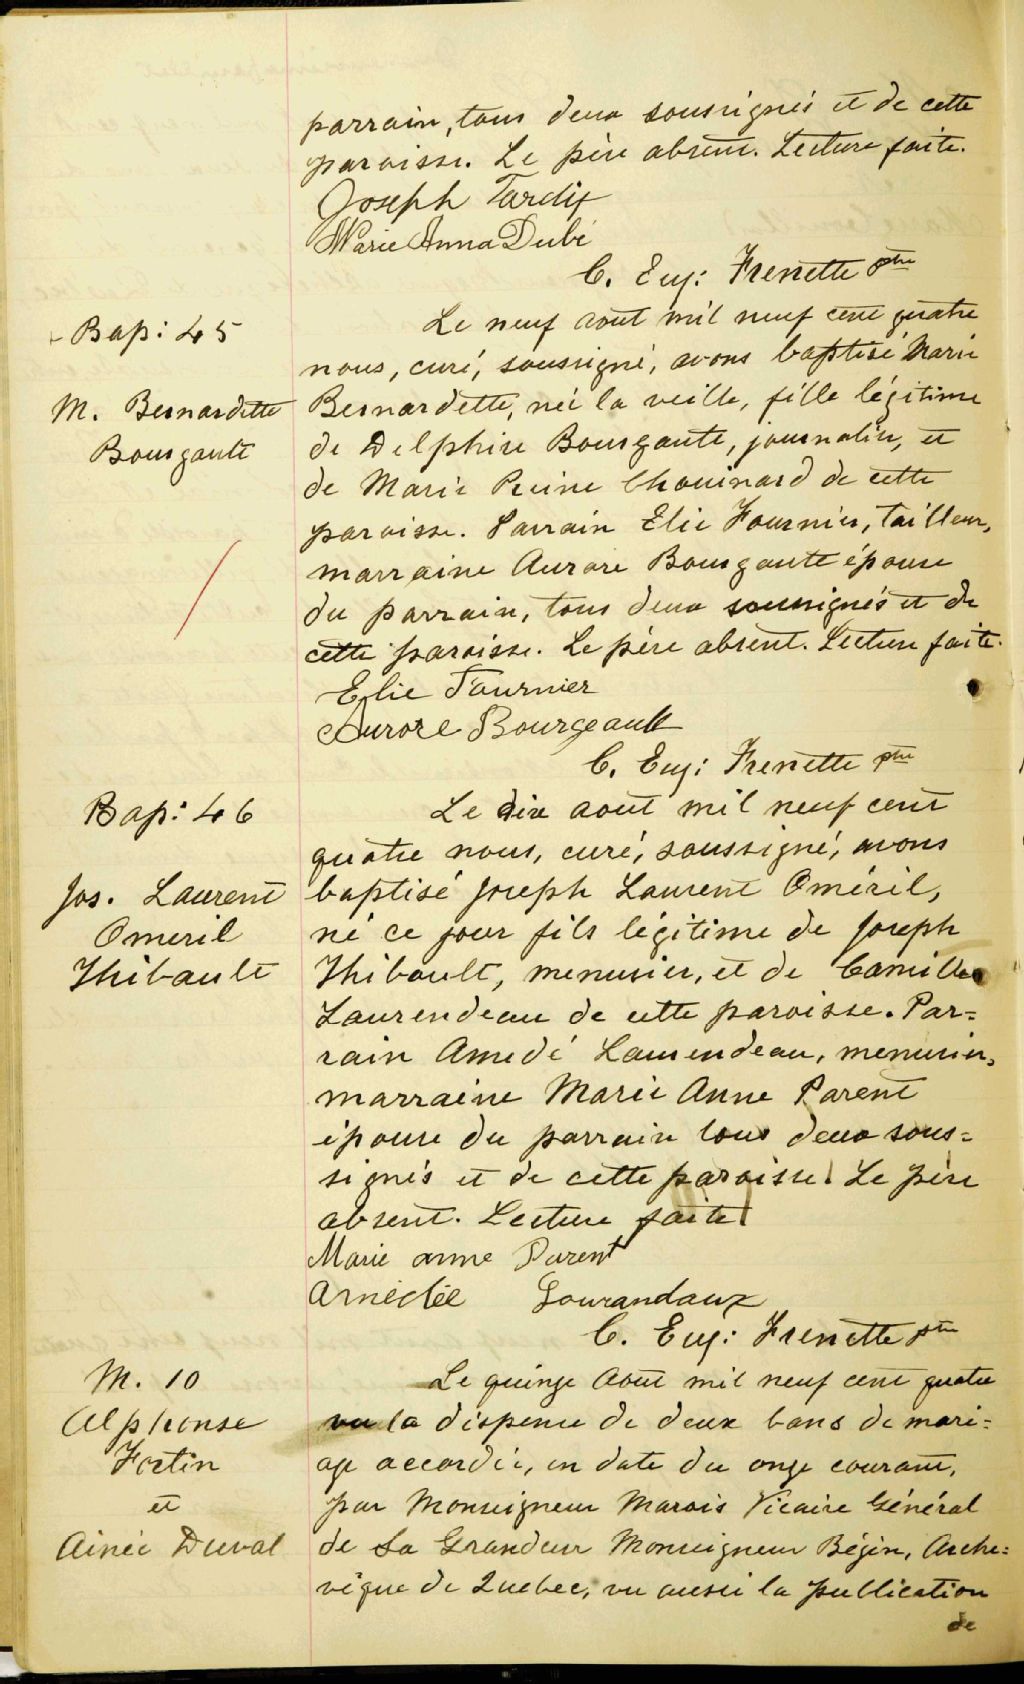 parrain, tous deux soussignés et de cette
paroisse. Le père absent. Lecture faite.
Joseph Tardif
Marie Anna Dubé
C. Eug: Frenette ptre
Bap: 45
M. Bernardette
Bourgault
Le neuf aout mil neuf cent quatre
nous, curé, soussigné, avons baptisé Marie
Bernardette, née la veille, fille légitime
de Delphire Bourgault, journalier, et
de Marie Reine Chouinard de cette
paroisse. Parrain Elie Fournier, tailleur,
marraine Aurore Bourgault épouse
du parrain, tous deux soussignés et de
cette paroisse. Le père absent. Lecture faite.
Elie Fournier
Aurore Bourgeault
C. Eug: Frenette ptre
Bap: 46
Jos. Laurent
Omeril
Thibault
Le dix aout mil neuf cent
quatre nous, curé, soussigné, avons
baptisé Joseph Laurent Oméril,
né ce jour fils légitime de Joseph
Thibault, menusier, et de Camille
Laurendeau de cette paroisse. Par=
rain Amedé Laurendeau, menusier,
marraine Marie Anne Parent
épouse du parrain tous deux sous=
signés et de cette paroisse. Le père
absent. Lecture faite
Marie anne Parent
Amédée Lourandaux
C. Eug: Frenette ptre
M. 10
Alphonse
Fortin
et
Ainée Duval
Le quinze Aout mil neuf cent quatre
vu la dispense de deux bans de mari=
age accordée, en date du onze courant,
par Monseigneur Marois Vicaire Général
de Sa Grandeur Monseigneur Bégin, Arche=
vêque de Quebec, vu aussi la publication
de